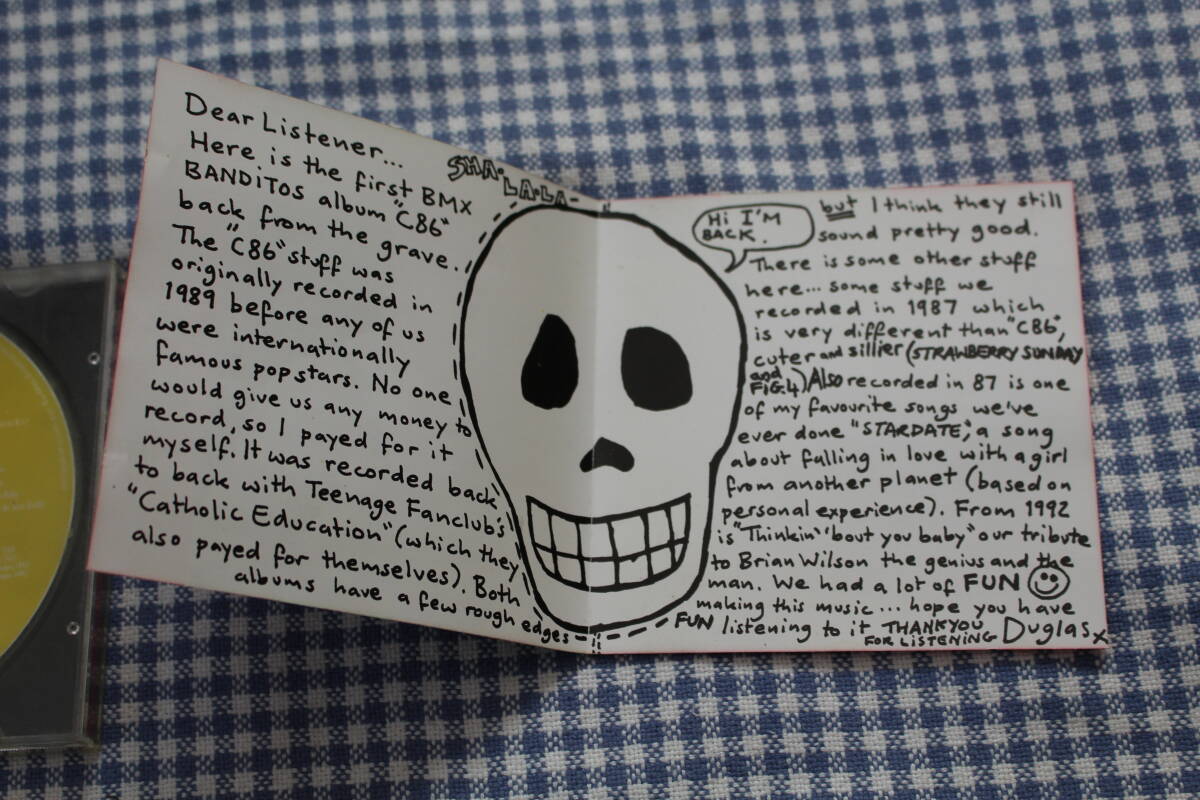 Dear Listener...
Here is the first BMX
BANDITOS album "C86"
back from the grave.
The "C86" stuff was
originally recorded in
1989 before any of us
were internationally
famous popstars. No one
would give us any money to
record, so I payed for it
myself. It was recorded back
to back with Teenage Fanclub's
"Catholic Education" (which they
also payed for themselves). Both
albums have a few rough edges
SHA-LA-LA-
Hi I'M
BACK.
but I think they still
sound pretty good.
There is some other stuff
here... some stuff we
recorded in 1987 which
is very different than "C86",
cuter and sillier (STRAWBERRY SUNDAY
and FiG.4) Also recorded in 87 is one
of my favourite songs we've
ever done "STARDATE", a song
about falling in love with a girl
from another planet (based on
personal experience). From 1992
is "Thinkin' 'bout you baby" our tribute
to Brian Wilson the genius and the
man. We had a lot of FUN
making this music... hope you have
FUN listening to it THANKYOU
FOR LiSTENiNG Duglas x